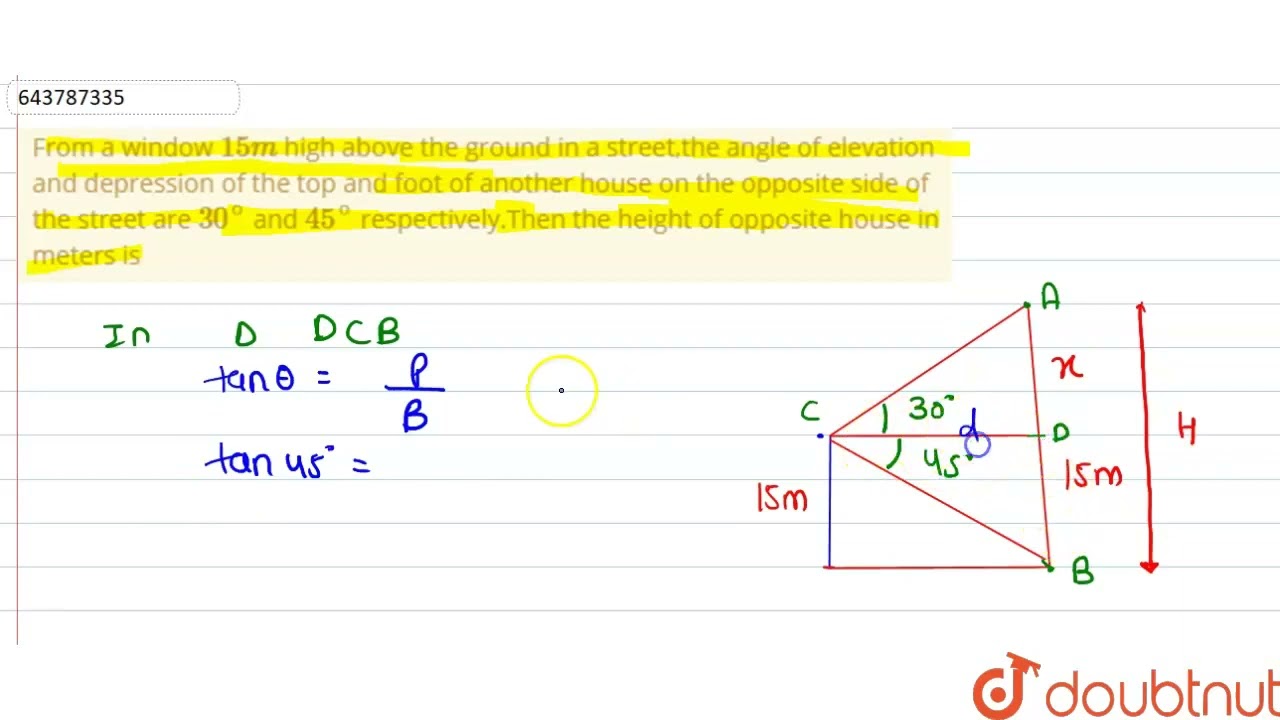 643787335
From a window 15m high above the ground in a street,the angle of elevation
and depression of the top and foot of another house on the opposite side of
the street are 30° and 45° respectively.Then the height of opposite house in
meters is
In D DCB
tanθ = P
B
tan 45° =
A
x
C 30° d D H
45° 15m
15m
B
doubtnut